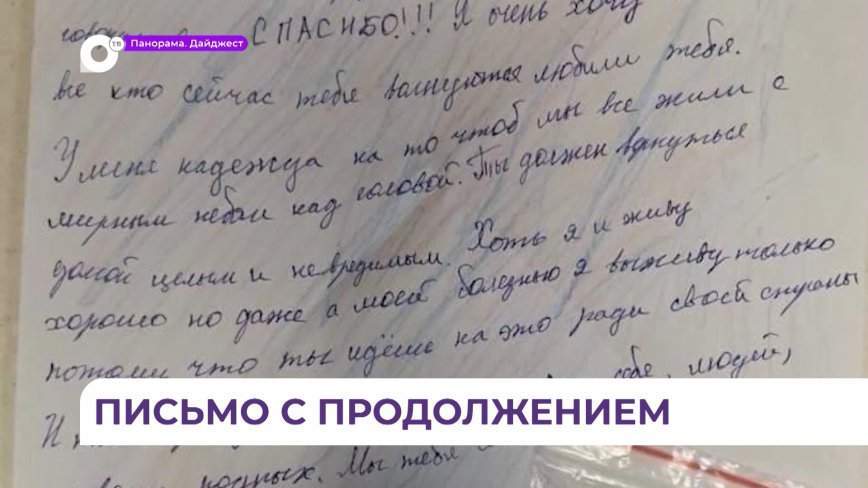 СПАСИБО!!! Я очень хочу
ТВ Панорама. Дайджест
все кто сейчас тебя волнуются любили тебя.
У меня надежда на то чтоб мы все жили с
мирным небом над головой. Ты должен вернуться
домой целым и невредимым. Хоть я и живу
хорошо но даже а моей болезнью я выживу только
потому что ты идёшь на это ради своей страны
И себе, людей,
ПИСЬМО С ПРОДОЛЖЕНИЕМ
родных. Мы тебя